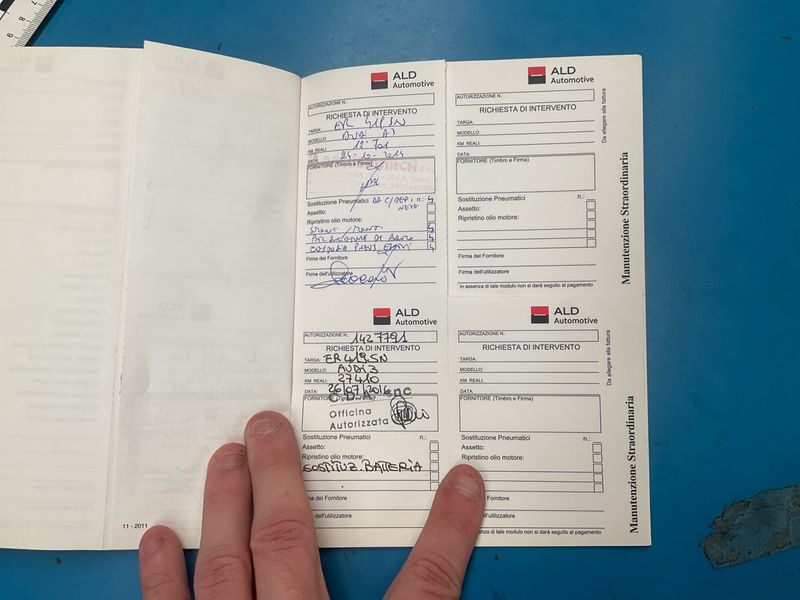 ALD
Automotive
AUTORIZZAZIONE N.:
RICHIESTA DI INTERVENTO
TARGA: ER 419SN
MODELLO: AUDI A3
KM REALI: 12.701
DATA:
FORNITORE (Timbro e Firma)
Sostituzione Pneumatici n.: 4
Assetto:
Ripristino olio motore:
SMONT/MONT 4
4
CUSTODIA PNEUS ESTIVI 4
Firma del Fornitore
Firma dell'utilizzatore
ALD
Automotive
AUTORIZZAZIONE N.:
RICHIESTA DI INTERVENTO
TARGA:
MODELLO:
KM REALI:
DATA:
FORNITORE (Timbro e Firma)
Sostituzione Pneumatici n.:
Assetto:
Ripristino olio motore:
Firma del Fornitore
Firma dell'utilizzatore
In assenza di tale modulo non si darà seguito al pagamento
Da allegare alla fattura
Manutenzione Straordinaria
ALD
Automotive
AUTORIZZAZIONE N.: 1427791
RICHIESTA DI INTERVENTO
TARGA: ER 419SN
MODELLO: AUDI 3
KM REALI: 27410
DATA: 26/07/2016
FORNITORE
Officina
Autorizzata
Sostituzione Pneumatici n.:
Assetto:
Ripristino olio motore:
SOSTITUZ. BATTERIA
ma del Fornitore
ma dell'utilizzatore
11 - 2011
ALD
Automotive
AUTORIZZAZIONE N.:
RICHIESTA DI INTERVENTO
TARGA:
MODELLO:
KM REALI:
DATA:
FORNITORE (Timbro e Firma)
Sostituzione Pneumatici n.:
Assetto:
Ripristino olio motore:
Firma del Fornitore
Firma dell'utilizzatore
In assenza di tale modulo non si darà seguito al pagamento.
Da allegare alla fattura
Manutenzione Straordinaria
7 8 9